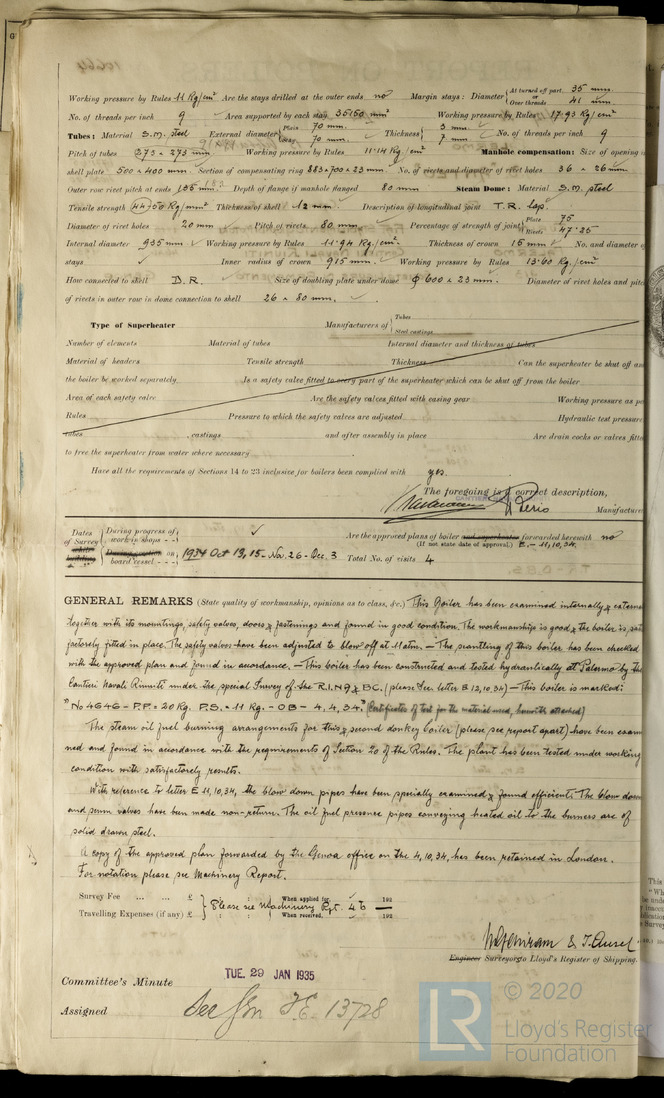 Working pressure by Rules 11 Kg/cm² Are the stays drilled at the outer ends no Margin stays: Diameter { At turned off part. 35 mm. or Over threads 41 mm
No. of threads per inch 9 Area supported by each stay 35150 mm² Working pressure by Rules 17.93 Kg/cm²
Tubes: Material S.M. steel External diameter { Plain 70 mm. Stay 70 mm. Thickness { 3 mm. 7 mm. No. of threads per inch 9
Pitch of tubes 273 x 273 mm Working pressure by Rules 11.14 Kg/cm² Manhole compensation: Size of opening
shell plate 500 x 400 mm. Section of compensating ring 883+700 x 23 mm. No. of rivets and diameter of rivet holes 36 x 26 mm
Outer row rivet pitch at ends 135 mm Depth of flange if manhole flanged 80 mm Steam Dome: Material S.M. steel
Tensile strength 44-50 Kg/mm² Thickness of shell 12 mm. Description of longitudinal joint T.R. lap.
Diameter of rivet holes 20 mm Pitch of rivets 80 mm. Percentage of strength of joint { Plate 75 Rivets 47.25
Internal diameter 935 mm Working pressure by Rules 11.94 Kg/cm² Thickness of crown 15 mm No. and diameter of
stays Inner radius of crown 915 mm. Working pressure by Rules 13.60 Kg/cm²
How connected to shell D.R. Size of doubling plate under dome φ 600 x 23 mm. Diameter of rivet holes and pitch
of rivets in outer row in dome connection to shell 26 x 80 mm.
Type of Superheater Manufacturers of { Tubes Steel castings
Number of elements Material of tubes Internal diameter and thickness of tubes
Material of headers Tensile strength Thickness Can the superheater be shut off and
the boiler be worked separately Is a safety valve fitted to every part of the superheater which can be shut off from the boiler
Area of each safety valve Are the safety valves fitted with easing gear Working pressure as per
Rules Pressure to which the safety valves are adjusted Hydraulic test pressure
tubes , castings and after assembly in place Are drain cocks or valves fitted
to free the superheater from water where necessary
Have all the requirements of Sections 14 to 23 inclusive for boilers been complied with yes.
The foregoing is a correct description,
Manufacturer
Dates of Survey while building { During progress of work in shops - - During erection on board vessel - - - 1934 Oct 13, 15 - Nov. 26 - Dec. 3 Are the approved plans of boiler and superheater forwarded herewith no
(If not state date of approval.) E. - 11,10,34.
Total No. of visits 4
GENERAL REMARKS (State quality of workmanship, opinions as to class, &c.) This boiler has been examined internally & externally
together with its mountings, safety valves, doors & fastenings and found in good condition. The workmanship is good & the boiler is satis
factorely fitted in place. The safety valves have been adjusted to blow off at 11 atm. - The scantling of this boiler has been checked
with the approved plan and found in accordance. - This boiler has been constructed and tested hydraulically at Palermo by the
Cantieri Navali Riuniti under the special Survey of the R.I.N. & BC. (please see letter E 13,10,34) - This boiler is marked:
"No 4646 - P.P. = 20 Kg. P.S. = 11 Kg. - OB - 4, 4, 34." (Certificates of test for the material used, herewith attached)
The steam oil fuel burning arrangements for this & second donkey boiler (please see report apart) have been exami
ned and found in accordance with the requirements of Section 20 of the Rules. The plant has been tested under working
condition with satisfactorely results.
With reference to letter E 11,10,34, the blow down pipes have been specially examined & found efficient. The blow down
and scum valves have been made non-return. The oil fuel pressure pipes conveying heated oil to the burners are of
solid drawn steel.
A copy of the approved plan forwarded by the Genoa office on the 4,10,34, has been retained in London.
For notation please see Machinery Report.
Survey Fee ... ... £ } Please see Machinery Rpt. 4b — When applied for, 192
Travelling Expenses (if any) £ When received, 192
Engineer Surveyors to Lloyd's Register of Shipping.
TUE. 29 JAN 1935
Committee's Minute
Assigned See F.E. 13728
LR © 2020
Lloyd's Register
Foundation